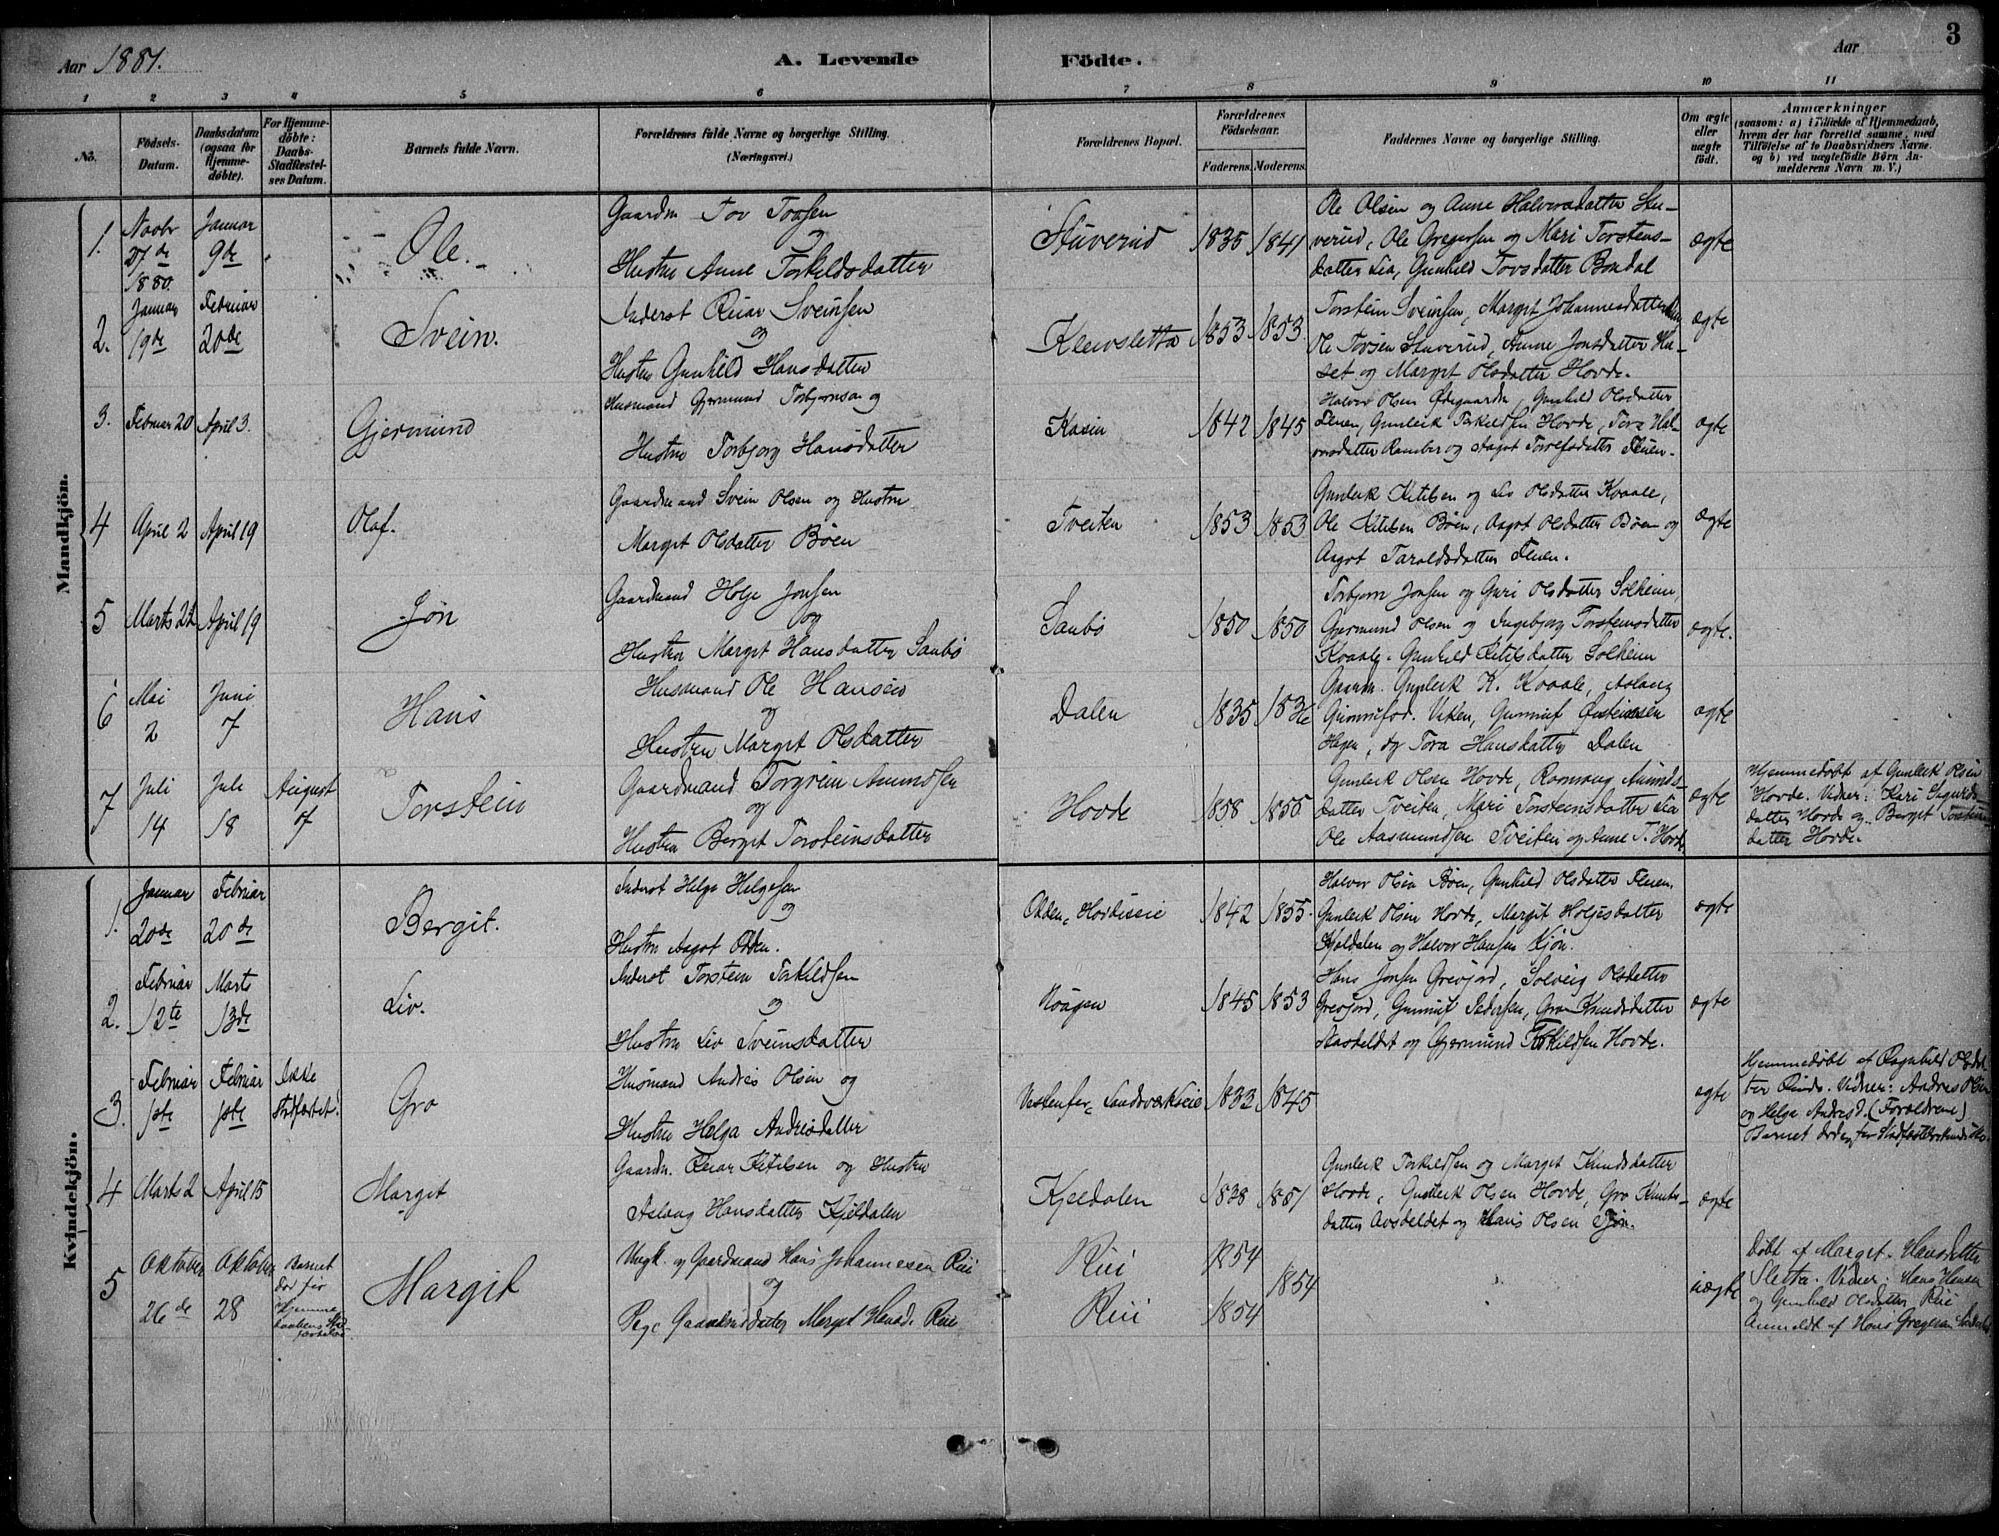 Aar 1881.
A. Levende Födte.
Aar
3
1 2 3 4 5 6 7 8 9 10 11
No.
Födsels-
Datum.
Daabsdatum
(ogsaa for
Hjemme-
döbte).
For Hjemme-
döbte:
Daabs-
Stadfæstel-
ses Datum.
Barnets fulde Navn.
Forældrenes fulde Navne og borgerlige Stilling.
(Næringsvei.)
Forældrenes Bopæl.
Forældrenes
Födselsaar.
Faderens. Moderens.
Faddernes Navne og borgerlige Stilling.
Om ægte
eller
uægte
födt.
Anmærkninger
(saasom: a) i Tilfælde af Hjemmedaab,
hvem der har forrettet samme, med
Tilföielse af to Daabsvidners Navne.
og b) ved uægtefödte Börn An-
melderens Navn m. V.)
Mandkjön.
1.
Novbr
27de
1880.
Januar
9de
Ole.
Gaardm Tov Tovsen
og
Hustru Anne Torkildsdatter
Stuverud
1835 1841
Ole Olsen og Anne Halvorsdatter Stu-
verud, Ole Gregersen og Mari Torstens-
datter Lia, Gunhild Tovsdatter Bondal
ægte
2.
Januar
19de
Februar
20de
Svein.
Inderst Reiar Sveinsen
og
Hustru Gunhild Hansdatter
Kleivsletta
1853 1853.
Torstein Sveinsen, Margit Johannesdatter
Ole Tovsen Stuverud, Anne Jonsdatter Hu-
set og Margit Olsdatter Hovde.
ægte
3.
Februar 20
April 3.
Gjermund
Husmand Gjermund Torbjørnsen og
Hustru Torbjørg Hansdatter
Kasin
1842 1845
Halvor Olsen Ødegaarden, Gunhild Olsdatter
Flenen, Gunleik Torkildsen Hovde, Tore Hal-
vorsdatter Ramber og Aagot Torlefsdatter Flenen.
ægte
4
April 2
April 19
Olaf.
Gaardmand Svein Olsen og Hustru
Margit Olsdatter Bøen
Tveiten
1853 1853
Gunleik Ketilsen og Liv Olsdatter Kvaale,
Ole Ketilsen Bøen, Aagot Olsdatter Bøen og
Aagot Taraldsdatter Flenen.
ægte
5
Marts 22
April 19
Jøn
Gaardmand Holje Jonsen
og
Hustru Margit Hansdatter Saubø
Saubø
1850 1850
Torbjørn Jonsen og Guri Olsdatter Solheim,
Gjermund Olsen og Ingebjørg Torsteinsdatter
Kvaale. Gunhild Ketilsdatter Solheim
ægte.
6
Mai
2
Juni
7
Hans
Husmand Ole Hansen
og
Hustru Margit Olsdatter
Dalen
1835 1836
Gaardm. Gunleik K. Kvaale, Aslaug
Gunnufsd. Viken, Gunnuf Øisteinsen
Hegen, og Tora Hansdatter Dalen
ægte
7
Juli
14
Juli
18
August
7
Torstein
Gaardmand Torgrim Amundsen
og
Hustru Berget Torsteinsdatter
Hovde
1858 1855
Gunleik Olsen Hovde, Ramong Aminds-
datter Tveiten, Mari Torsteensdatter Lia
Ole Aasmundsen Tveiten og Anne T. Hovde
ægte
Hjemmedøbt af Gunleik Olsen
Hovde. Vidner: Kari Sigurds-
datter Hovde og Berget Torsteins-
datter Hovde.
Kvindekjön.
1.
Januar
20de
Februar
20de
Bergit.
Inderst Helge Helgesen
og
Hustru Aagot Odden.
Odden, Hovdeseie
1842 1855.
Halvor Olsen Bøen, Gunhild Olsdatter Flenen.
Gunleik Olsen Hovde, Margit Holjesdatter
Kjeldalen og Halvor Hansen Kjøn.
ægte
2.
Februar
12te
Marts
13de
Liv.
Inderst Torstein Torkildsen
og
Hustru Liv Sveinsdatter
Haugen
1845 1853
Hans Jonsen Grevjord, Solveig Olsdatter
Grevjord, Gunnuf Pedersen, Gro Knudsdatter
og Gjermund Torkildsen Hovde.
ægte
3.
Februar
1ste
Februar
1ste
Ikke
stadfæstet.
Gro
Husmand Andres Olsen og
Hustru Helga Andresdatter
Sandsværkseie
1832 1845
ægte
Hjemmedøbt af Ragnhild Olsdat-
ter Rinde. Vidner: Andres Olsen
og Helga Andresd. (Forældrene)
Barnet døde før Stadfæstelse
4
Marts 2
April 15
Marget
Gaardm. Reiar Ketilsen og Hustru
Aslaug Hansdatter Kjeldalen
Kjeldalen
1838 1851
Gunleik Torkildsen og Margit Knudsdatter
Hovde, Gunleik Olsen Hovde, Gro Knuts-
datter Avsdeldet og Hans Olsen Kjøn.
ægte
5
Oktober
26de
Oktober
28
Barnet
dør før
Hjemme
daabens Stad
fæstelse
Margit
Ungk. og Gaardmand Hans Johannesen Rui
og
Pige Gaardmdsdatter Margit Hansd. Rui
Rui
Rui
1854
1854
1854
uægte
Døbt af Marget Hansdatter
Sletta. Vidner: Hans Hansen
og Gunhild Olsdatter Rui
Anmeldt af Hans Gregersen